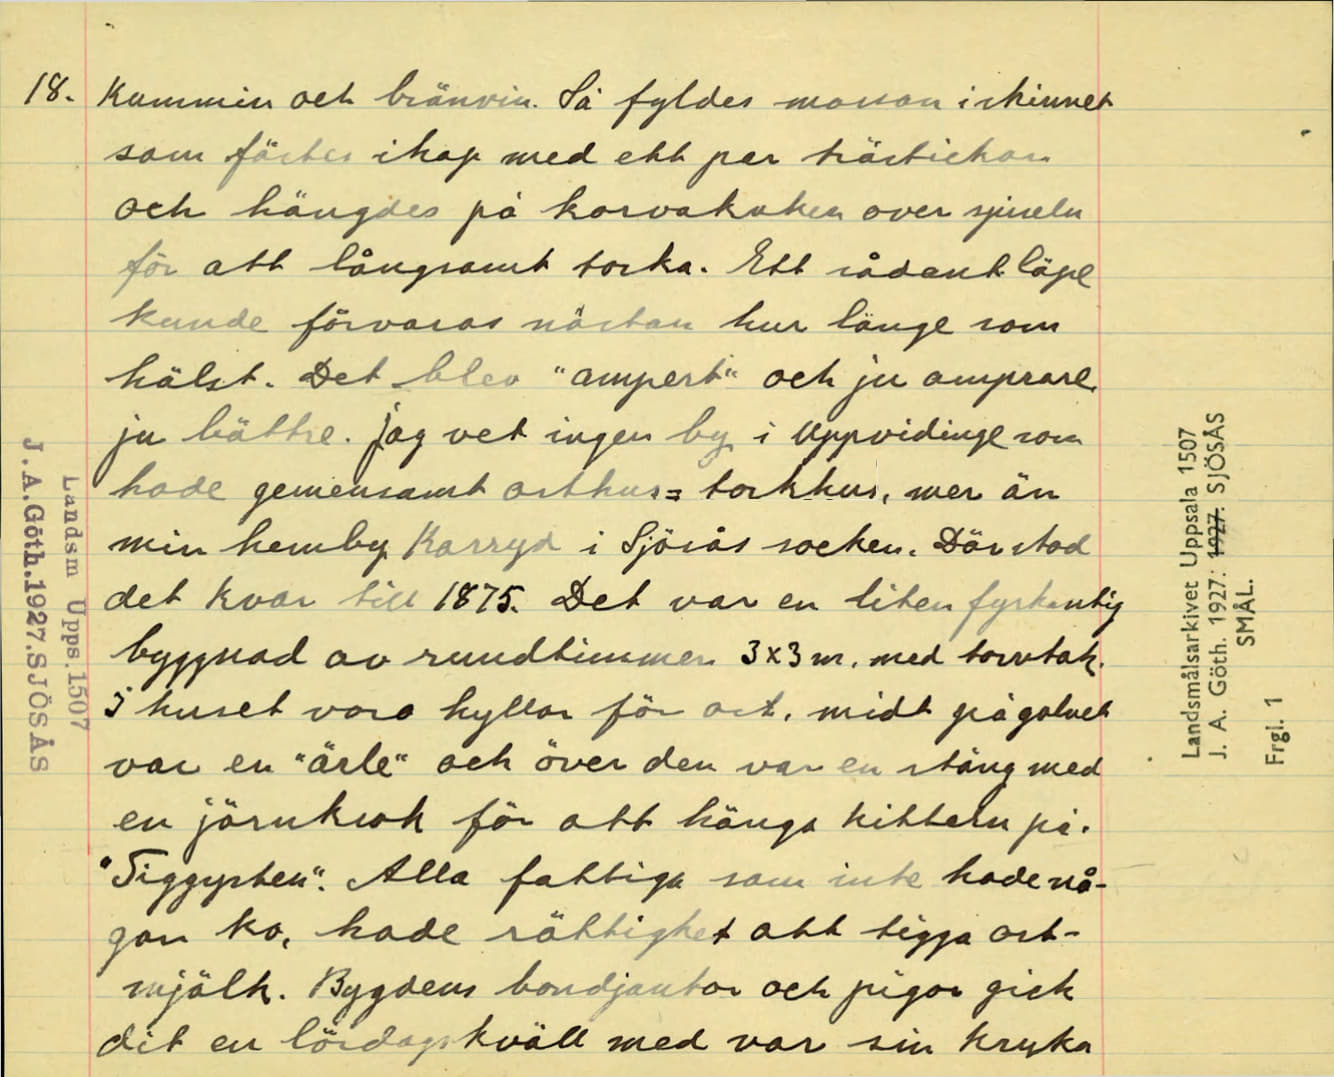 18. Kummin och bränvin. Så fyldes massan i skinnet
som fästes ihop med ett par trästickor
och hängdes på korvakroken över spiseln
för att långsamt torka. Ett sådant läpe
kunde förvaras nästan hur länge som
hälst. Det blev "ampert" och ju amprare
ju bättre. Jag vet ingen by i Uppvidinge som
hade gemensamt osthus = torkhus, mer än
min hemby Karryd i Sjösås socken. Där stod
det kvar till 1875. Det var en liten fyrkantig
byggnad av rundtimmer 3x3 m. med torvtak.
I huset voro hyllor för ost, midt på golvet
var en "ärle" och över den var en stång med
en järnkrok för att hänga kitteln på.
"Tiggysten". Alla fattiga som inte hade nå-
gon ko, hade rättighet att tigga ost-
mjölk. Bygdens bondjäntor och pigor gick
dit en lördagskväll med var sin kruka
Landsm Upps.1507
J.A.Göth.1927.SJÖSÅS
Landsmålsarkivet Uppsala 1507
J. A. Göth. 1927: 1927. SJÖSÅS
SMÅL.
Frgl. 1